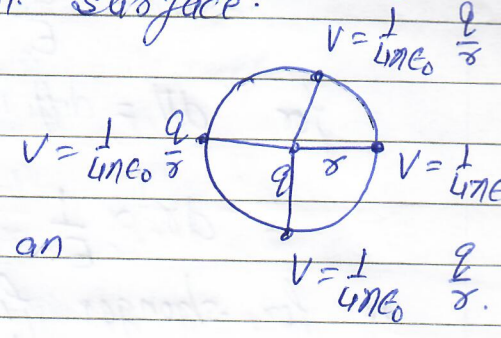 surface.
V = 1/4πε₀ q/r
V = 1/4πε₀ q/r
q r V = 1/4πε
an
V = 1/4πε₀ q/r.